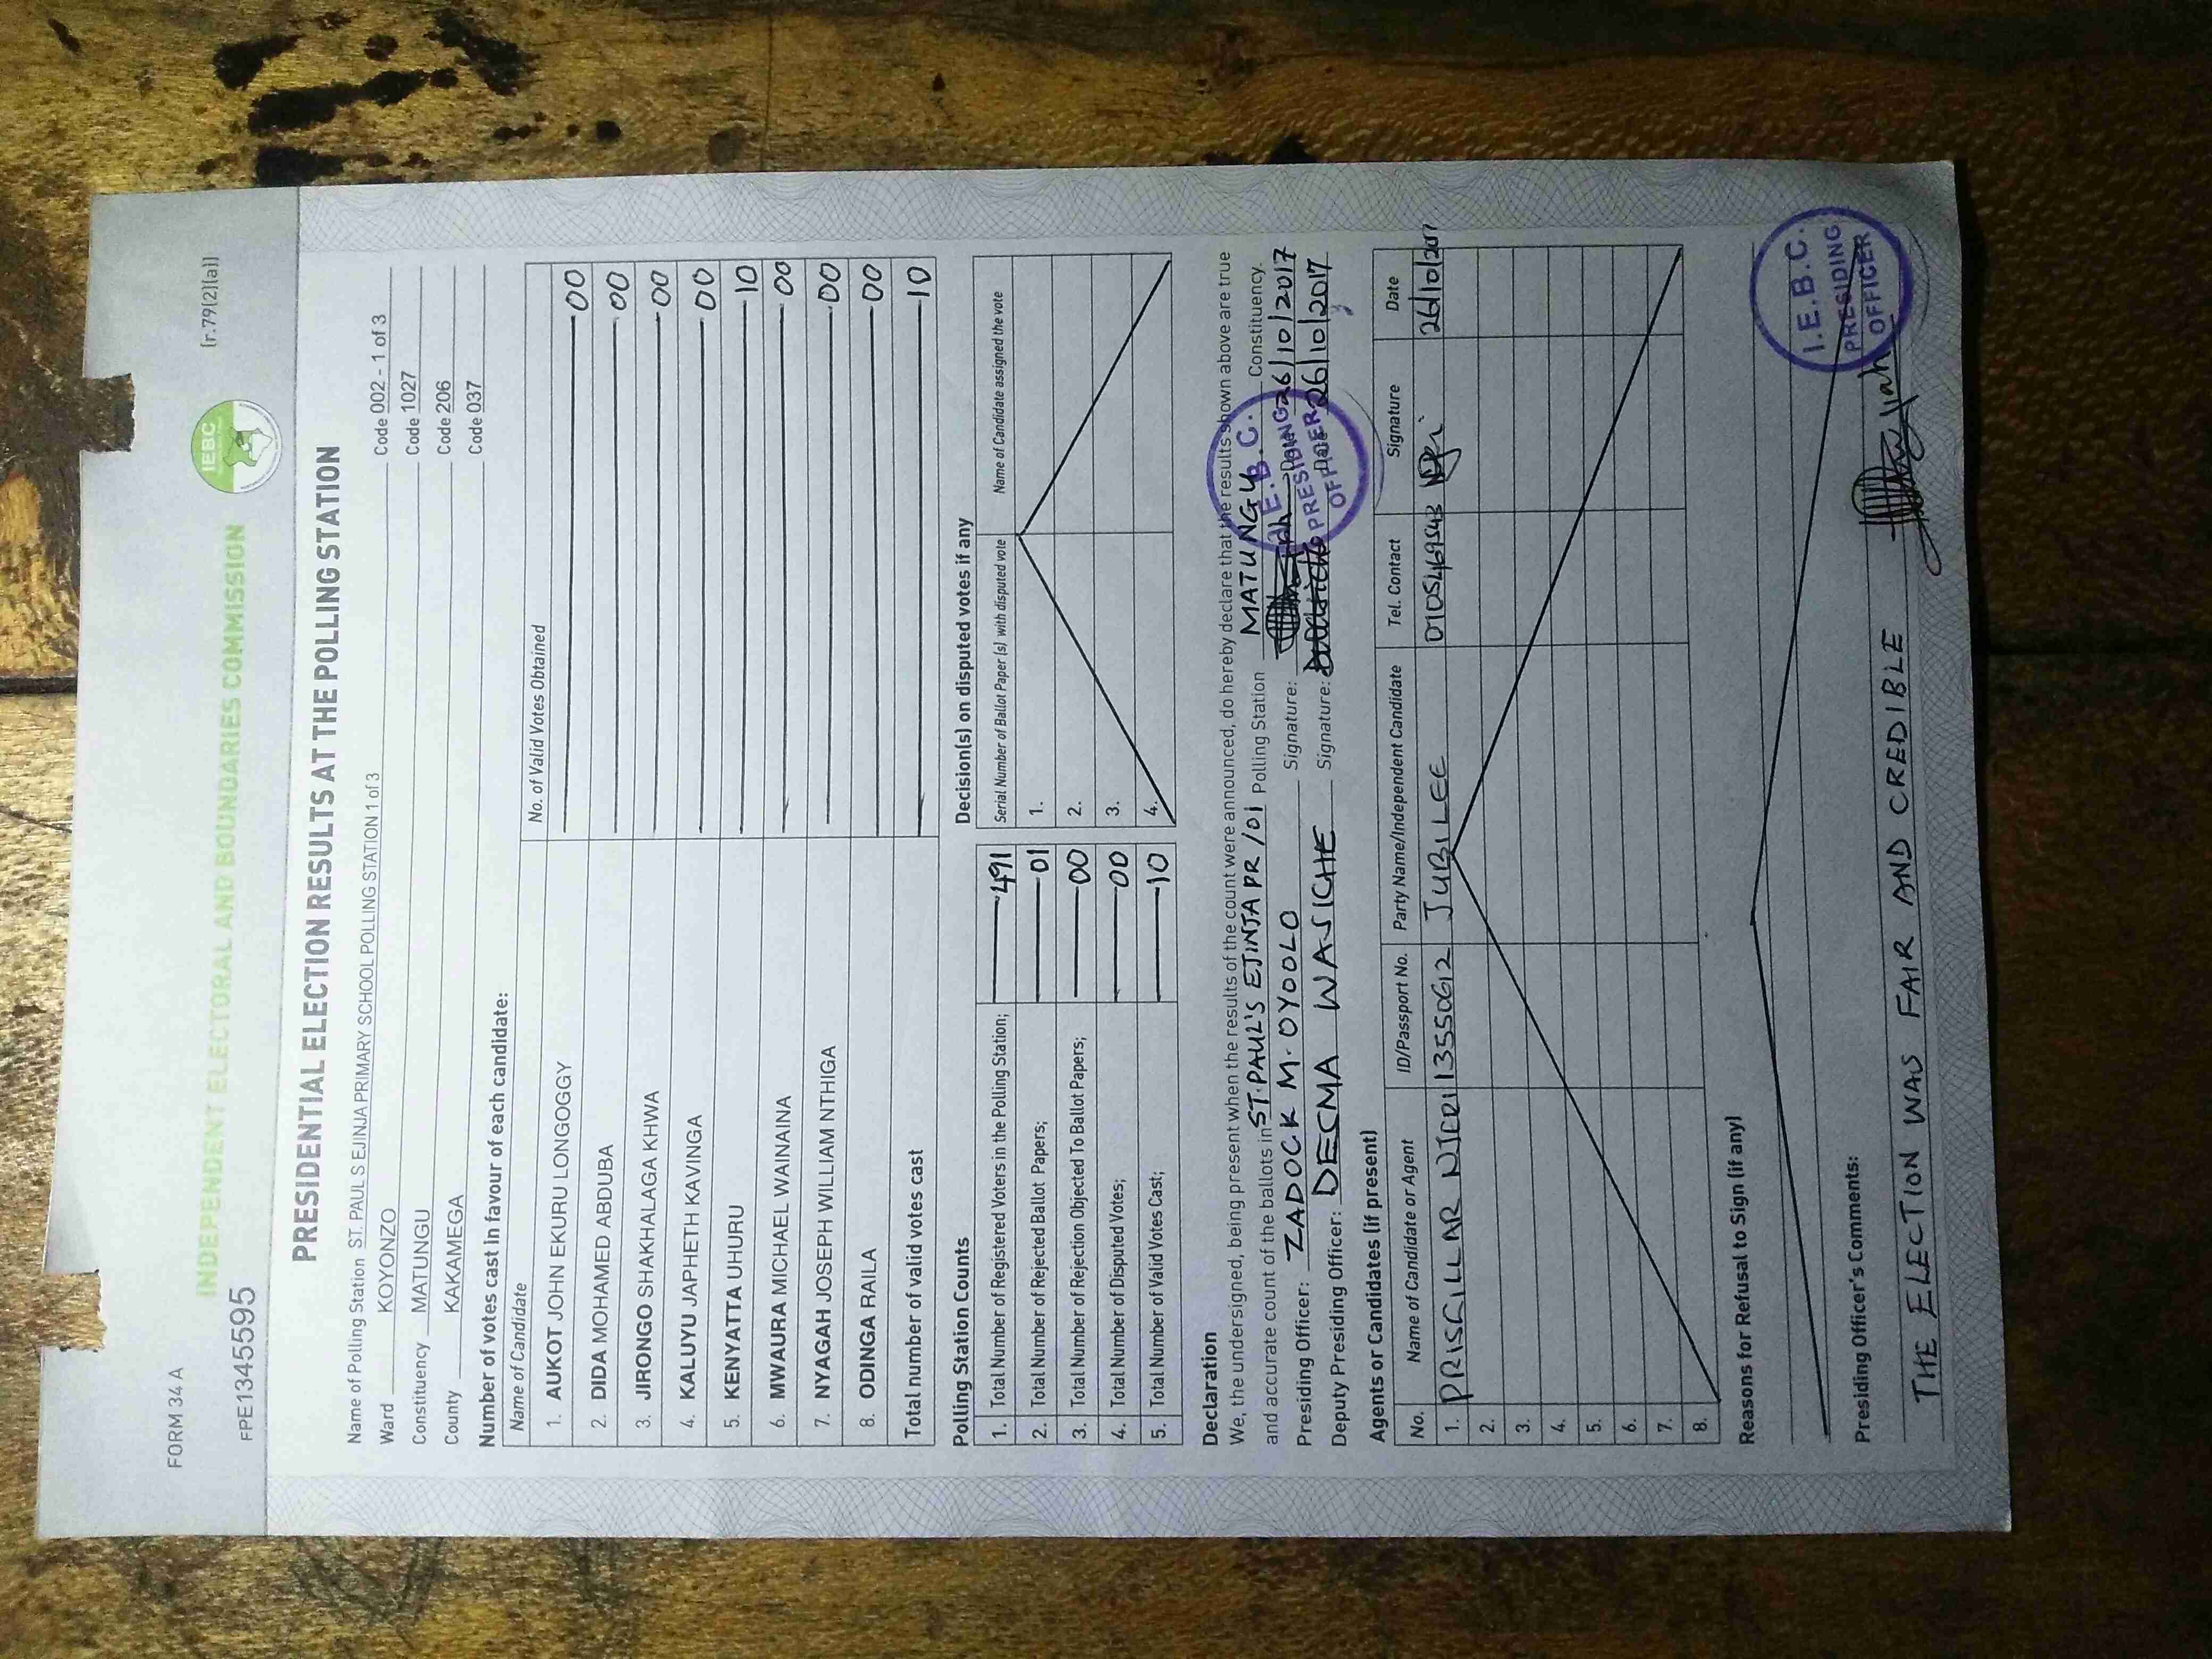 FORM 34 A
[r.79(2)(a)]
IEBC
INDEPENDENT ELECTORAL AND BOUNDARIES COMMISSION
FPE1345595
PRESIDENTIAL ELECTION RESULTS AT THE POLLING STATION
Name of Polling Station ST. PAUL S EJINJA PRIMARY SCHOOL POLLING STATION 1 of 3 Code 002 - 1 of 3
Ward KOYONZO Code 1027
Constituency MATUNGU Code 206
County KAKAMEGA Code 037
Number of votes cast in favour of each candidate:
Name of Candidate No. of Valid Votes Obtained
1. AUKOT JOHN EKURU LONGOGGY 00
2. DIDA MOHAMED ABDUBA 00
3. JIRONGO SHAKHALAGA KHWA 00
4. KALUYU JAPHETH KAVINGA 00
5. KENYATTA UHURU 10
6. MWAURA MICHAEL WAINAINA 00
7. NYAGAH JOSEPH WILLIAM NTHIGA 00
8. ODINGA RAILA 00
Total number of valid votes cast 10
Polling Station Counts
1. Total Number of Registered Voters in the Polling Station; 491
2. Total Number of Rejected Ballot Papers; 01
3. Total Number of Rejection Objected To Ballot Papers; 00
4. Total Number of Disputed Votes; 00
5. Total Number of Valid Votes Cast; 10
Decision(s) on disputed votes if any
Serial Number of Ballot Paper (s) with disputed vote Name of Candidate assigned the vote
1.
2.
3.
4.
Declaration
We, the undersigned, being present when the results of the count were announced, do hereby declare that the results shown above are true
and accurate count of the ballots in ST. PAUL'S EJINJA PR /01 Polling Station MATUNGU Constituency.
Presiding Officer: ZADOCK M. OYOOLO Signature: Date 26/10/2017
Deputy Presiding Officer: DECMA WASICHE Signature: Date 26/10/2017
I.E.B.C.
PRESIDING
OFFICER
Agents or Candidates (if present)
No. Name of Candidate or Agent ID/Passport No. Party Name/Independent Candidate Tel. Contact Signature Date
1. PRISCILLAR 13550612 JUBILEE 26/10/2017
2.
3.
4.
5.
6.
7.
8.
Reasons for Refusal to Sign (if any)
Presiding Officer's Comments:
THE ELECTION WAS FAIR AND CREDIBLE
I.E.B.C.
PRESIDING
OFFICER